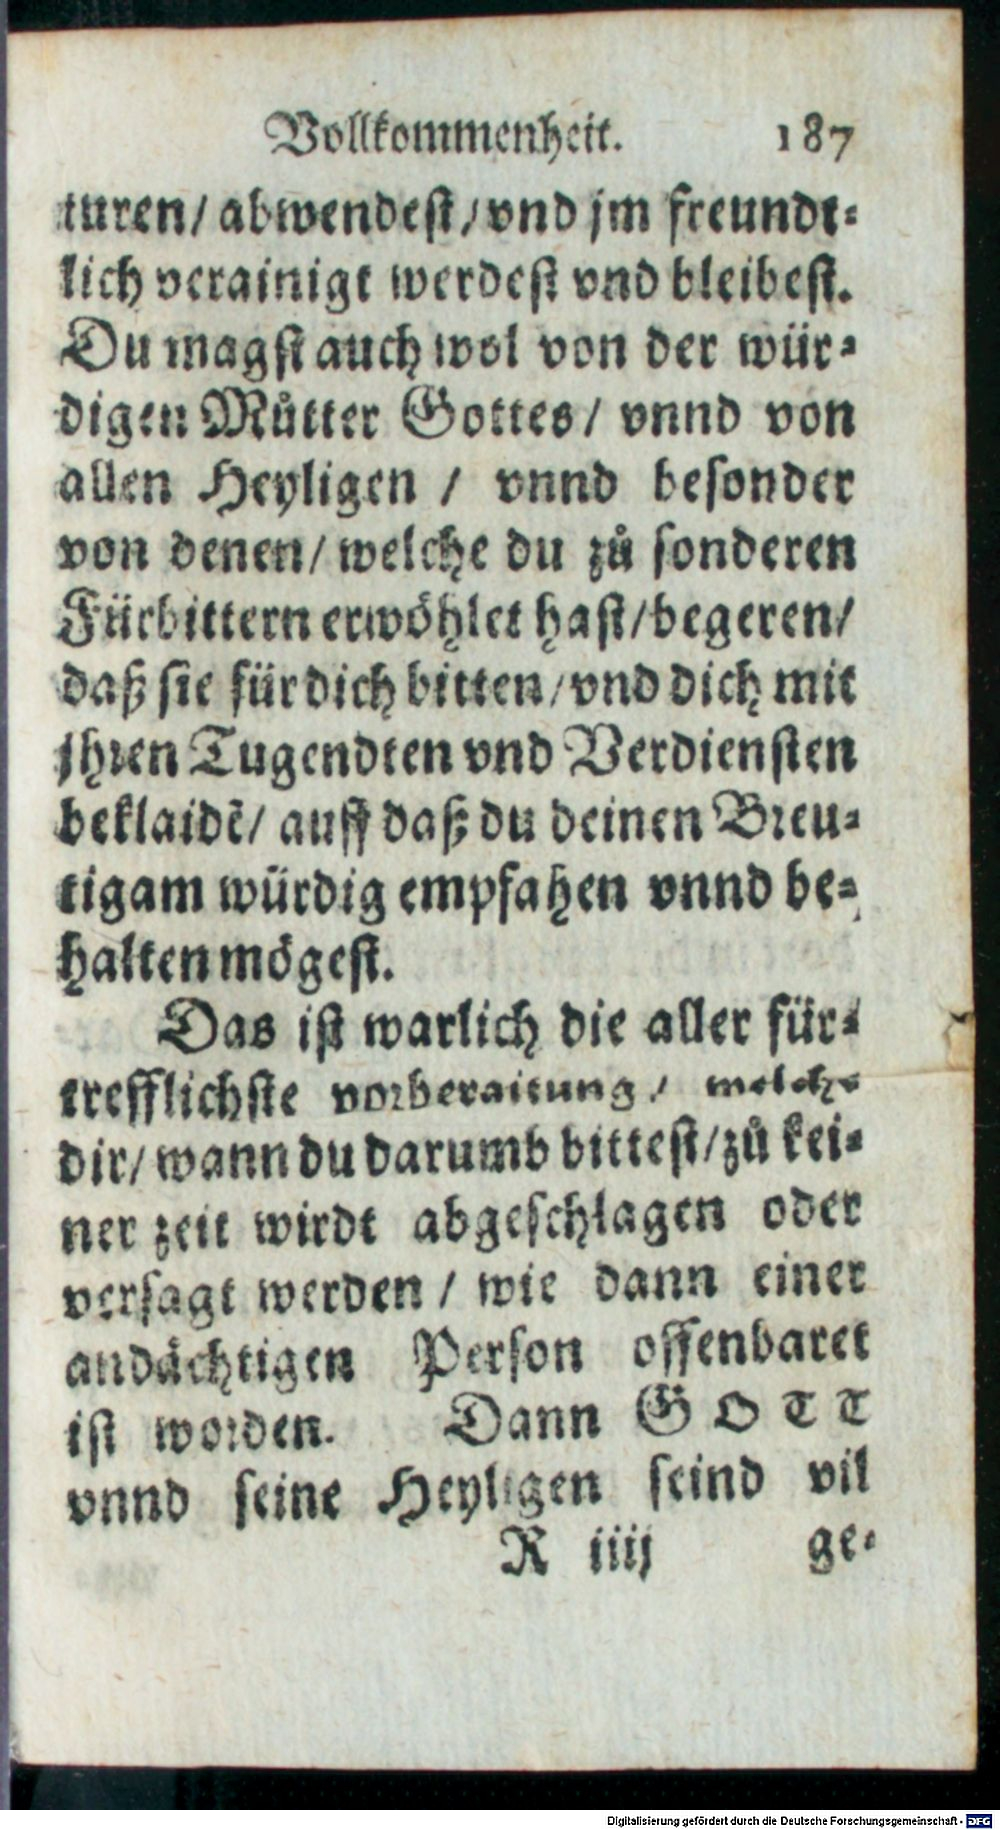 Vollkommenheit. 187
turen/ abwendest/ vnd jm freundt-
lich verainigt werdest vnd bleibest.
Du magst auch wol von der wür-
digen Můtter Gottes/ vnnd von
allen Heyligen / vnnd besonder
von denen/ welche du zů sonderen
Fürbittern erwöhlet hast/ begeren/
daß sie für dich bitten/ vnd dich mit
jhren Tugendten vnd Verdiensten
beklaidẽ/ auff daß du deinen Breu-
tigam würdig empfahen vnnd be-
halten mögest.
Das ist warlich die aller für-
trefflichste vorberaitung/ welche
dir/ wann du darumb bittest/ zů kei-
ner zeit wirdt abgeschlagen oder
versagt werden / wie dann einer
andächtigen Person offenbaret
ist worden. Dann GOTT
vnnd seine Heyligen seind vil
R iiij ge-
Digitalisierung gefördert durch die Deutsche Forschungsgemeinschaft - DFG